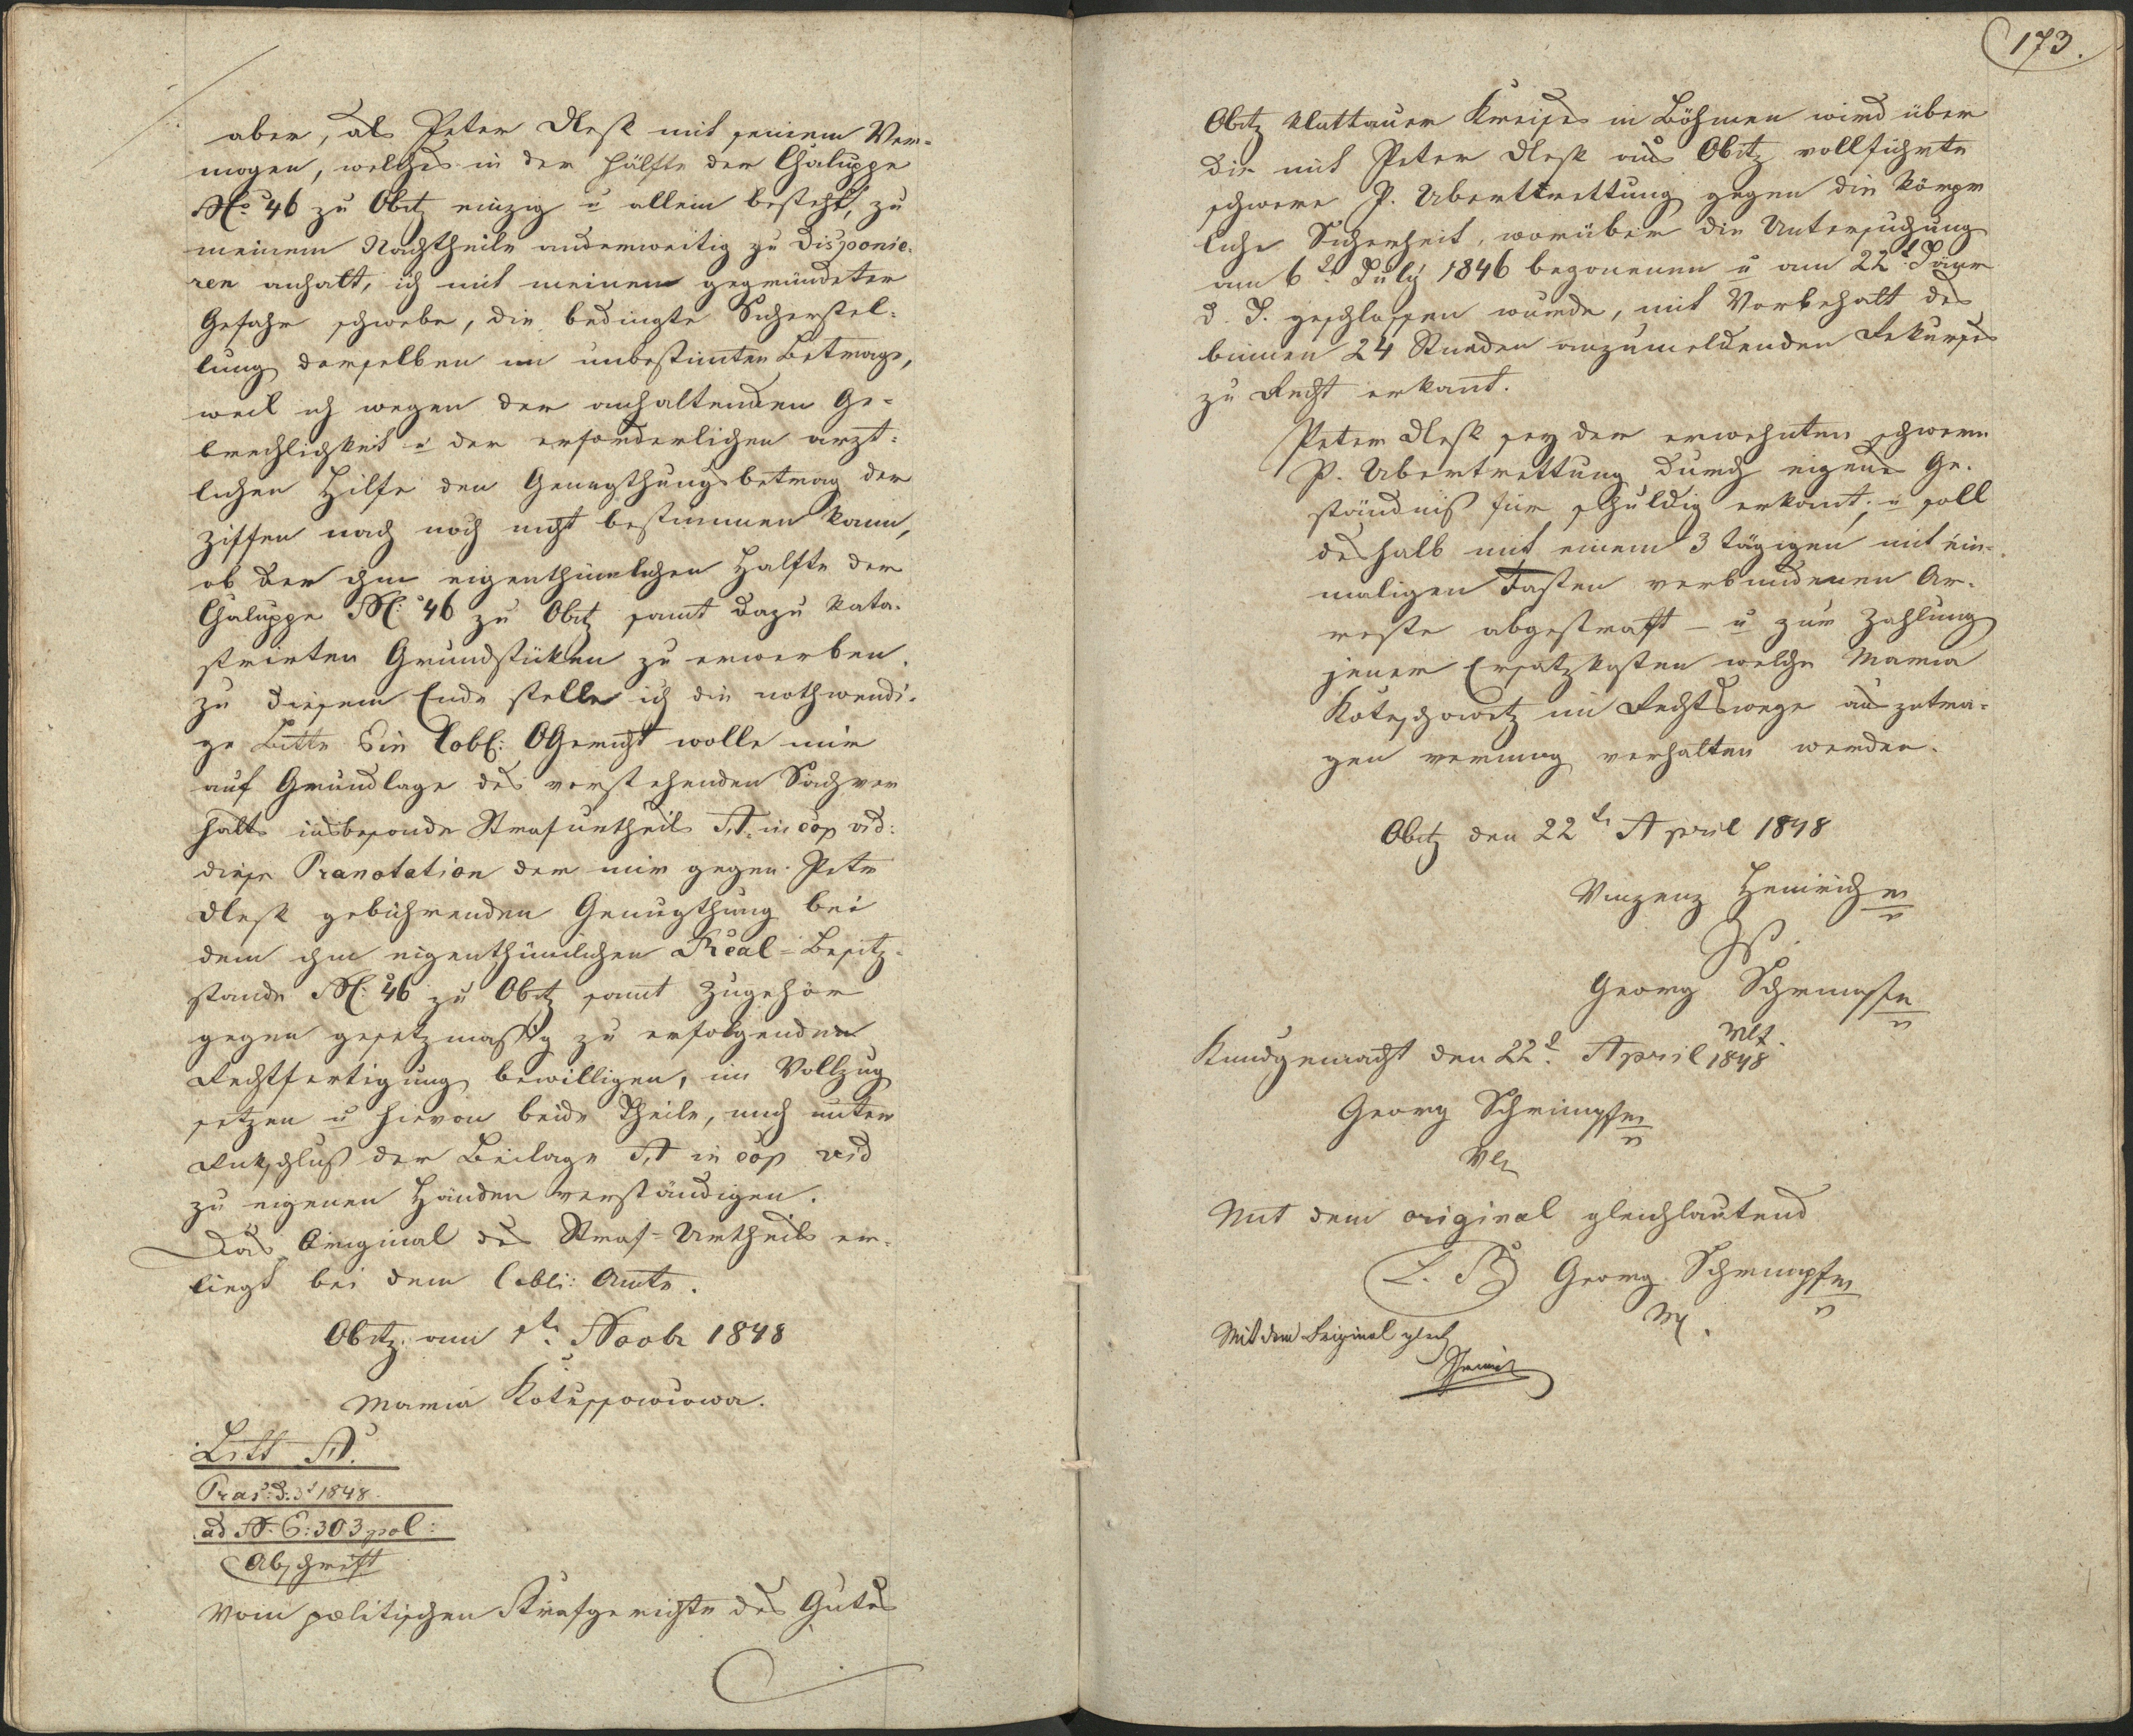 aber, als Peter Alesk mit seinem Ver-
mogen, welches in der Hälfte der Chaluppe
No 46 zu Obitz einzig u allein besteht, zu
meinem Nachtheile anderweitig zu disponie-
ren anhalt, ich mit meinem gegründeter
Gefahr schwebe, die bedingte Sicherstel-
lung derselben im unbestimten Betrage,
weil ich wegen der anhaltenden Ge-
brechlichkeit u der erforderlichen arzt-
lichen Hilfe den Genugthungsbetrag der
Ziffer nach noch nicht bestimmen kann,
ob der ihm eigenthümlichen Halfte der
Chaluppe No: 46 zu Obitz samt dazu kata-
strirten Grundstüken zu erwerben.
zu diesem Ende stelle ich die nothwendi-
ge Bitte Ein Lobl: OGericht wolle mir
auf Grundlage des vorstehenden Sachver
halts insbesonde Strafurtheils A. in cop vid:
diese Pranotation der mir gegen Peter
Alesk gebührenden Genugthung bei
dem ihm eigenthümlichen Real-Besitz-
stande No: 46 zu Obitz samt Zugehör
gegen gesetzmassig zu erfolgenden
Rechtfertigung bewilligen, in Vollzug
setzen u hievon beide Theile, mich unter
Rukschluß der Beilage A in cop vid
zu eigenen Händen verständigen.
Das Original des Straf-Urtheils er-
liegt bei dem lobli: Amte.
Obitz am 1t. Novbr 1848
Maria
Litt A.
Pras: d. 3t 1848.
ad N. E: 303 pol:
Abschrift
Vom politischen Strafgerichte des Gutes
173.
Obitz Klattauer Kreises in Böhmen wird über
die mit Peter Alesk aus Obitz vollführte
schwere P. Ubertrettung gegen die körper
liche Sicherheit, worüber die Untersuchung
am 6t. July 1846 begonnenen u am 22t. Jäner
d. J. geschlossen wurde, mit Vorbehalt des
binnen 24 Stunden anzumeldenden Rekurses
zu Recht erkant.
Peter Alesk sey der erwehnten schweren
P. Ubertrettung durch eigene Ge-
ständniß für schuldig erkant, u soll
deshalb mit einem 3 tägigen mit ein-
maligen Fasten verbundenen Ar-
reste abgestraft – u zur Zahlung
jener Ersatzkosten welche Maria
Koteschowetz im Rechtswege auszutra-
gen vermag verhalten werden.
Obitz den 22tn April 1848
Vinzenz Heinrich m
Georg Schrimpf m
Kundgemacht den 22t. April 1848
Georg Schrimpf m
Mit dem original gleichlautend
L. S. Georg Schrimpf m
Mit dem Original gleich